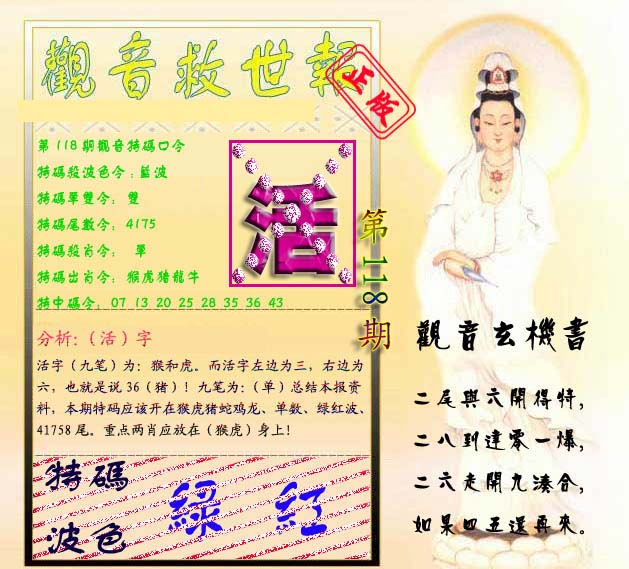 觀音救世報
正版
第118期觀音特碼口令
特碼殺波色令:藍波
特碼單雙令: 雙
特碼尾數令: 4175
特碼殺肖令: 單
特碼出肖令: 猴虎猪龍牛
特中碼令: 07 13 20 25 28 35 36 43
活
第118期
分析:（活）字
活字（九笔）为：猴和虎。而活字左边为三，右边为
六，也就是说36（猪）！九笔为：（单）总结本报资
料，本期特码应该开在猴虎猪蛇鸡龙、单数、绿红波、
41758尾。重点两肖应放在（猴虎）身上！
特碼
波色
綠 紅
觀音玄機書
二尾與六開得特,
二八到達零一爆,
二六走開九湊合,
如果四五還再來。